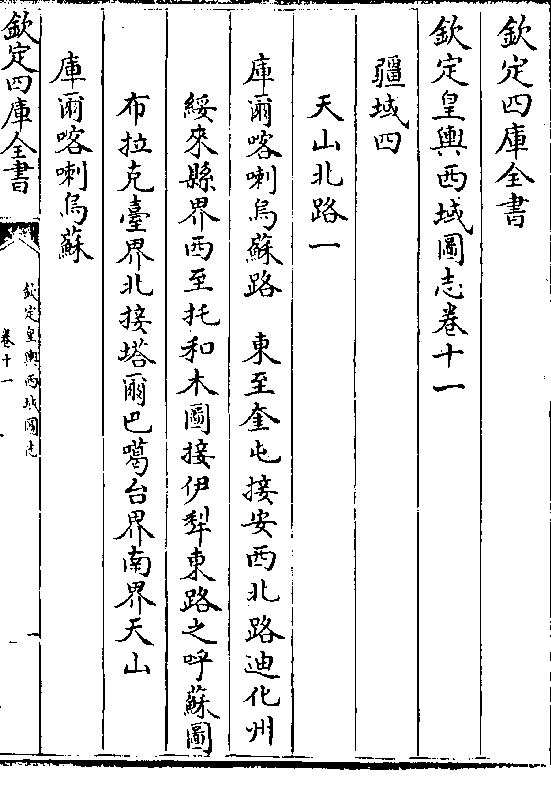 欽定四庫全書
欽定皇輿西域圖志卷十一
疆域四
天山北路一
庫爾喀喇烏蘇路　東至奎屯接安西北路迪化州
綏來縣界西至托和木圖接伊犁東路之呼蘇圖
布拉克臺界北接塔爾巴噶台界南界天山
庫爾喀喇烏蘇
欽定四庫全書
欽定皇輿西域圖志
卷十一
一